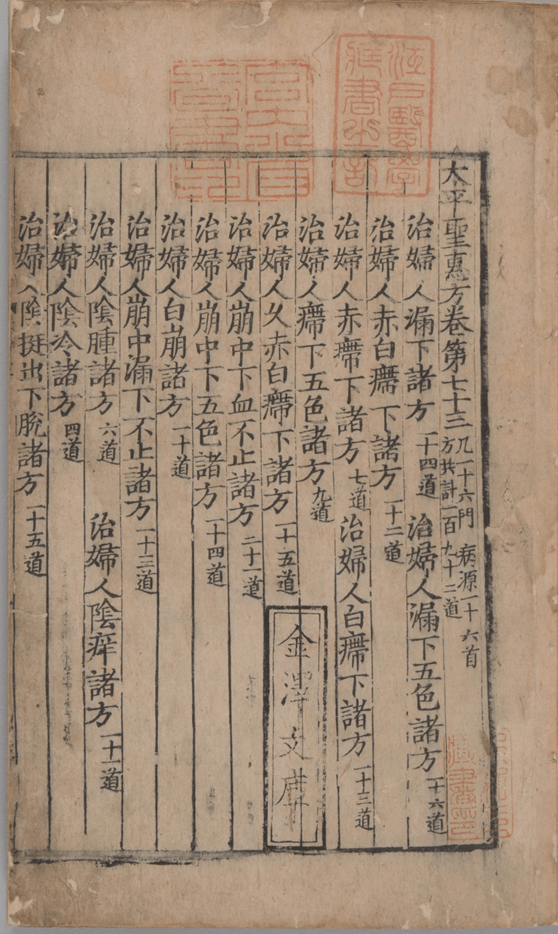 太平聖惠方卷第七十三 凡一十六門 病源一十六首 方共計一百九十二道
治婦人漏下諸方 一十四道 治婦人漏下五色諸方 一十六道
治婦人赤白癊下諸方 一十二道
治婦人赤癊下諸方 七道 治婦人白癊下諸方 一十三道
治婦人癊下五色諸方 九道
治婦人久赤白癊下諸方 一十五道
治婦人崩中下血不止諸方 二十一道
治婦人崩中下五色諸方 一十四道
治婦人白崩諸方 一十道
治婦人崩中漏下不止諸方 一十三道
治婦人陰腫諸方 六道 治婦人陰痒諸方 一十一道
治婦人陰冷諸方 四道
治婦人陰挺出下脫諸方 一十五道
金澤文庫
江戶醫學藏書之記